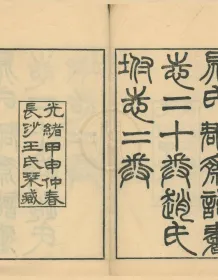 晁氏郡齋讀書
志二十卷趙氏
坿志二卷
光緒甲申仲春
長沙王氏栞藏